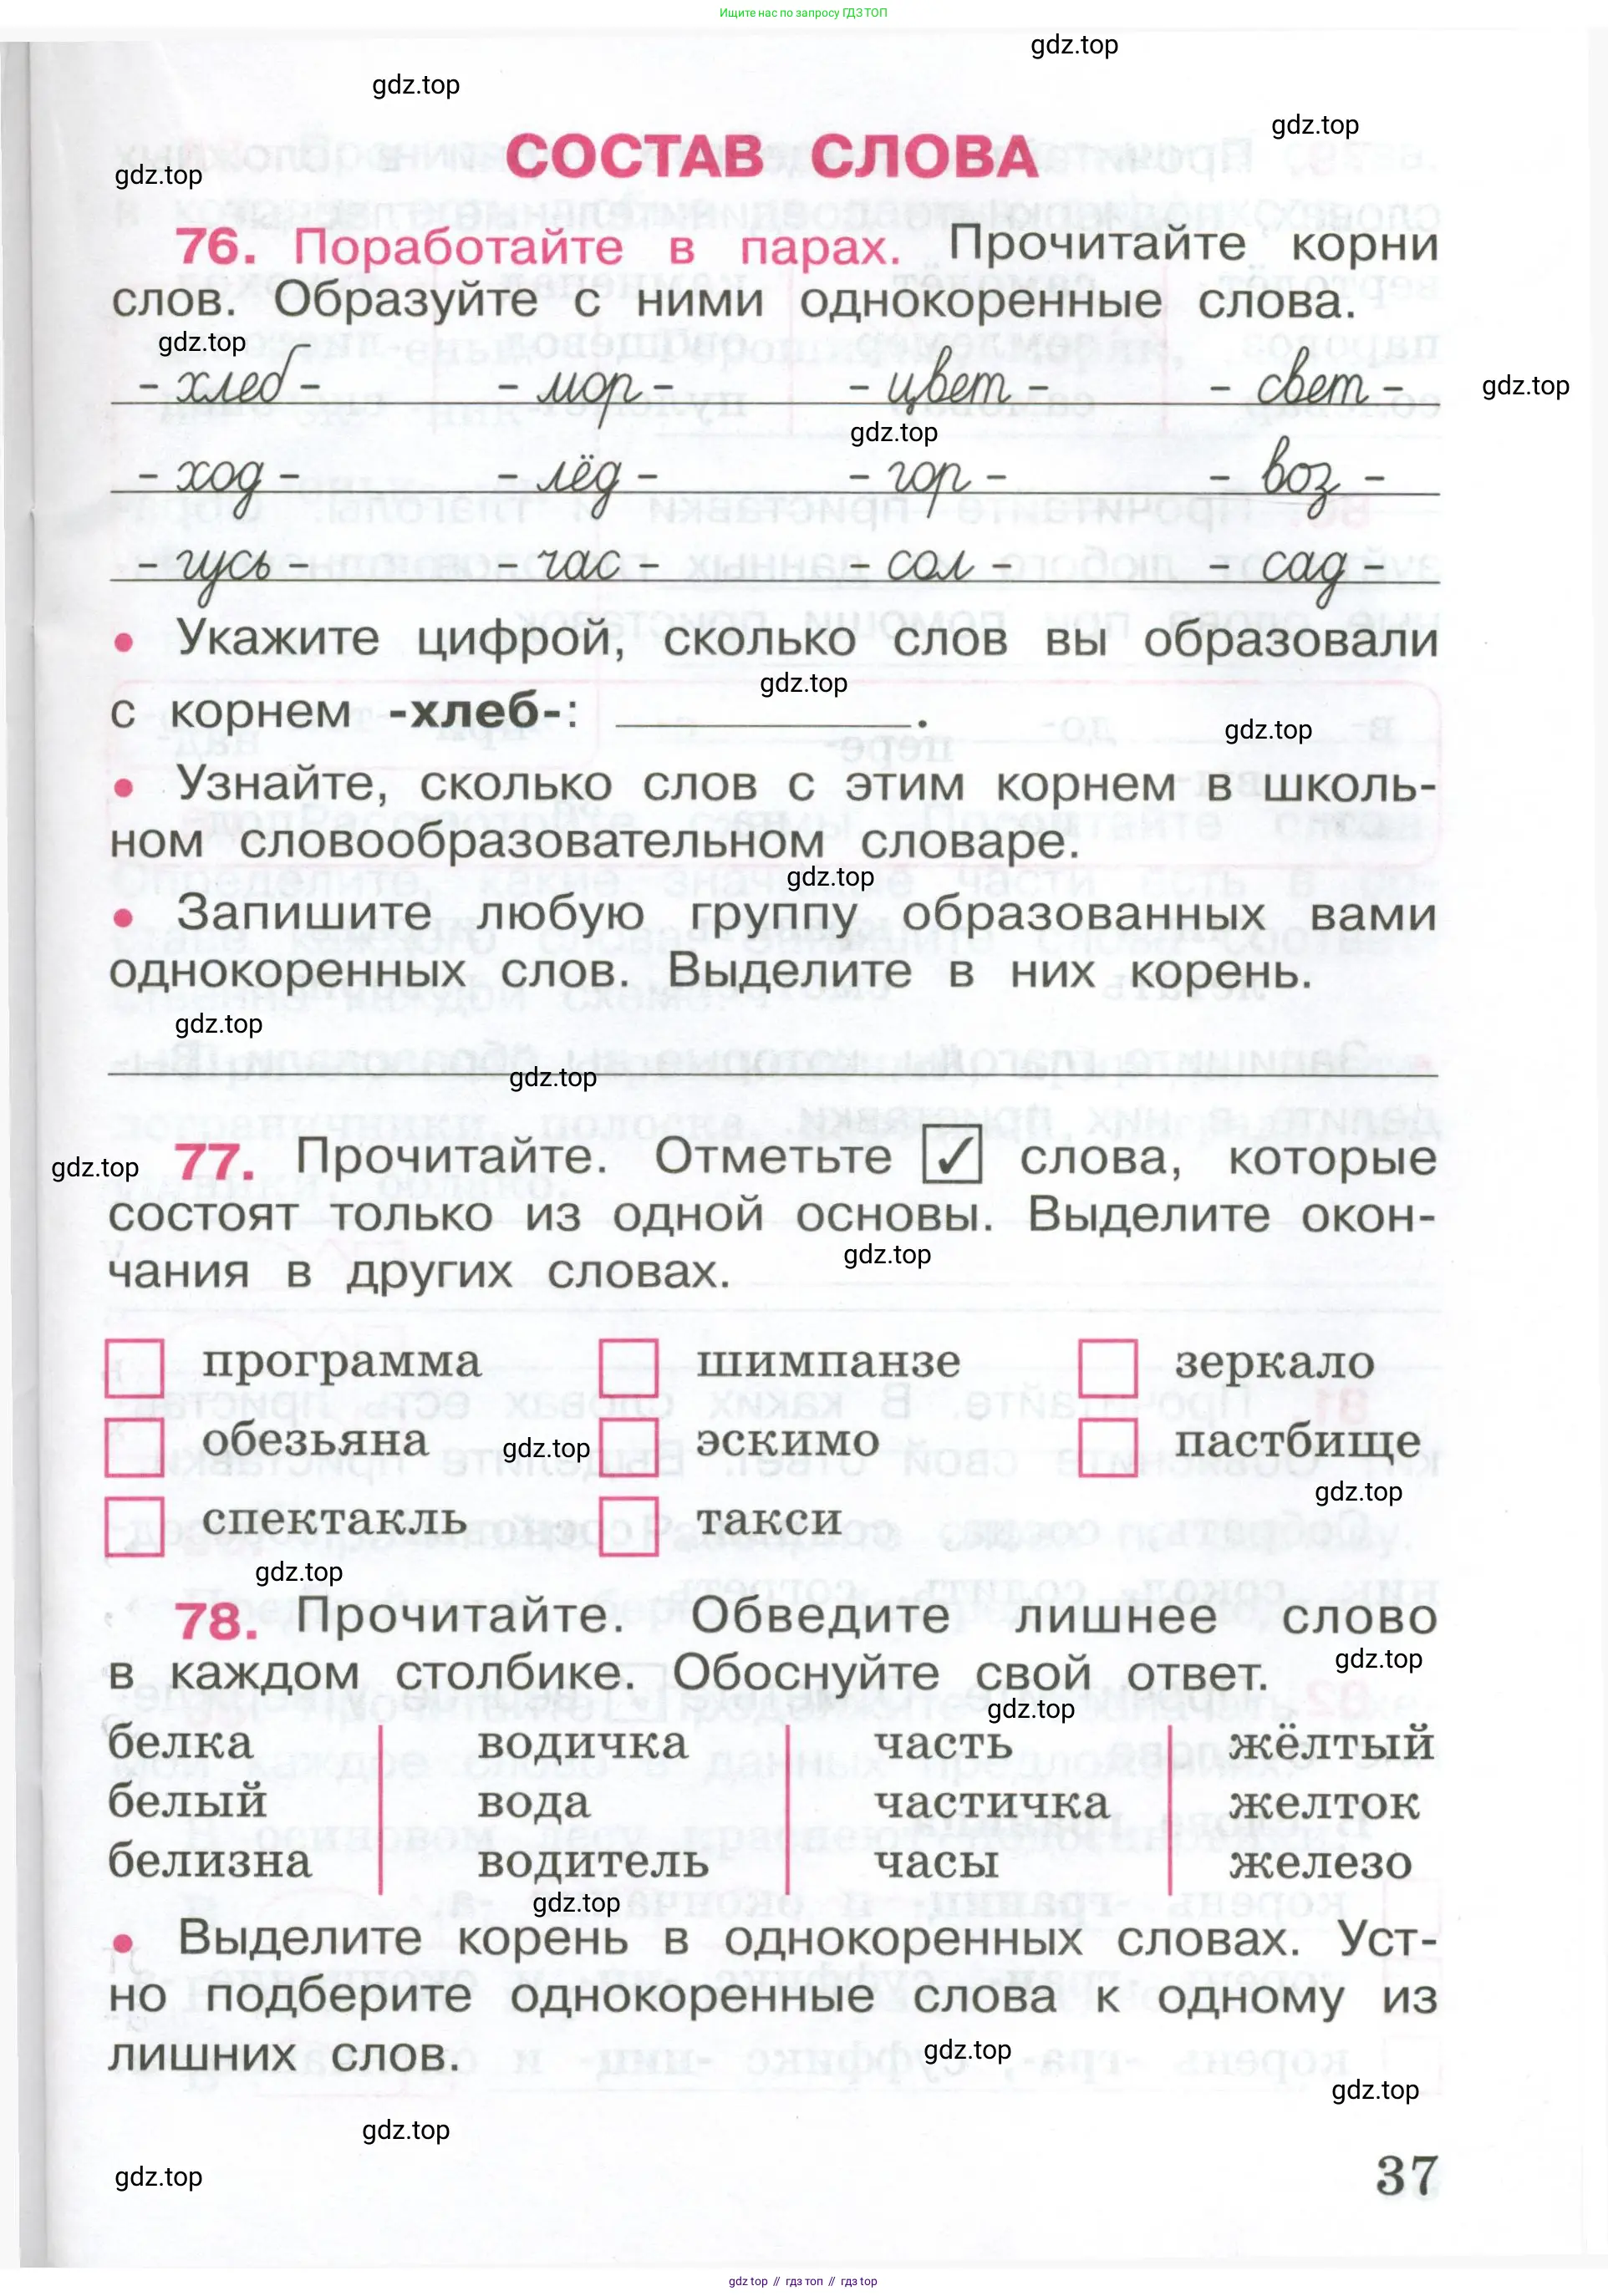 Ищите нас по запросу ГДЗ ТОП
gdz.top
gdz.top
gdz.top
СОСТАВ СЛОВА
gdz.top
76. Поработайте в парах. Прочитайте корни
слов. Образуйте с ними однокоренные слова.
gdz.top
- хлеб - - мор - - цвет - - свет -
gdz.top
gdz.top
- ход - - лёд - - гор - - воз -
- гусь - - час - - сол - - сад -
• Укажите цифрой, сколько слов вы образовали
gdz.top
с корнем -хлеб-: ____.
gdz.top
• Узнайте, сколько слов с этим корнем в школь-
ном словообразовательном словаре.
gdz.top
• Запишите любую группу образованных вами
однокоренных слов. Выделите в них корень.
gdz.top
gdz.top
77. Прочитайте. Отметьте ✓ слова, которые
gdz.top
состоят только из одной основы. Выделите окон-
gdz.top
чания в других словах.
программа шимпанзе зеркало
обезьяна эскимо пастбище
gdz.top
gdz.top
спектакль такси
gdz.top
78. Прочитайте. Обведите лишнее слово
gdz.top
в каждом столбике. Обоснуйте свой ответ.
gdz.top
белка водичка часть жёлтый
белый вода частичка желток
белизна водитель часы железо
gdz.top
• Выделите корень в однокоренных словах. Уст-
но подберите однокоренные слова к одному из
лишних слов.
gdz.top
gdz.top
gdz.top
gdz.top
37
gdz.top // гдз топ // гдз top